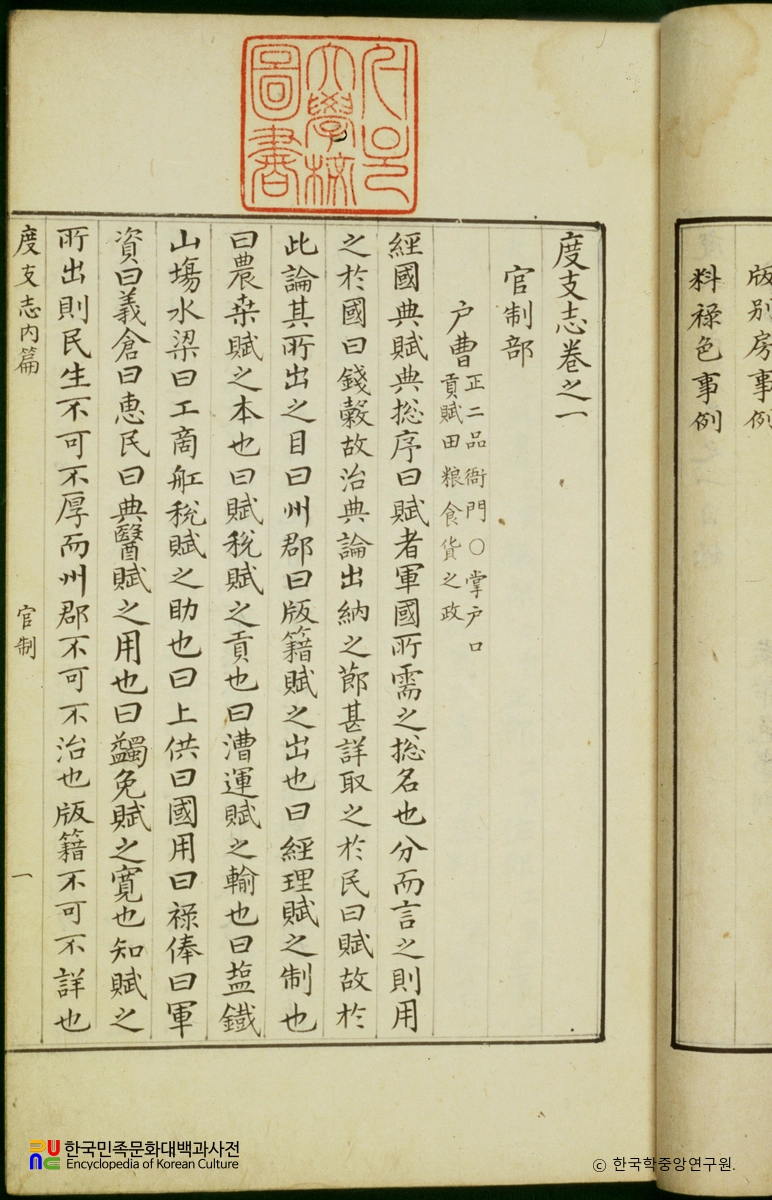 版别房事例
料祿色事例
서울
大學校
圖書
度支志卷之一
官制部
户曹 正二品衙門○掌户口
貢賦田粮食貨之政
經國典賦典捴序曰賦者軍國所需之捴名也分而言之則用
之於國曰錢糓故治典論出納之節甚詳取之於民曰賦故於
此論其所出之目曰州郡曰版籍賦之出也曰經理賦之制也
曰農桒賦之本也曰賦稅賦之貢也曰漕運賦之輸也曰塩鐵
山塲水梁曰工商舡稅賦之助也曰上供曰國用曰祿俸曰軍
資曰義倉曰惠民曰典醫賦之用也曰蠲免賦之寬也知賦之
所出則民生不可不厚而州郡不可不治也版籍不可不詳也
度支志內篇 官制 一
한국민족문화대백과사전
Encyclopedia of Korean Culture
© 한국학중앙연구원.